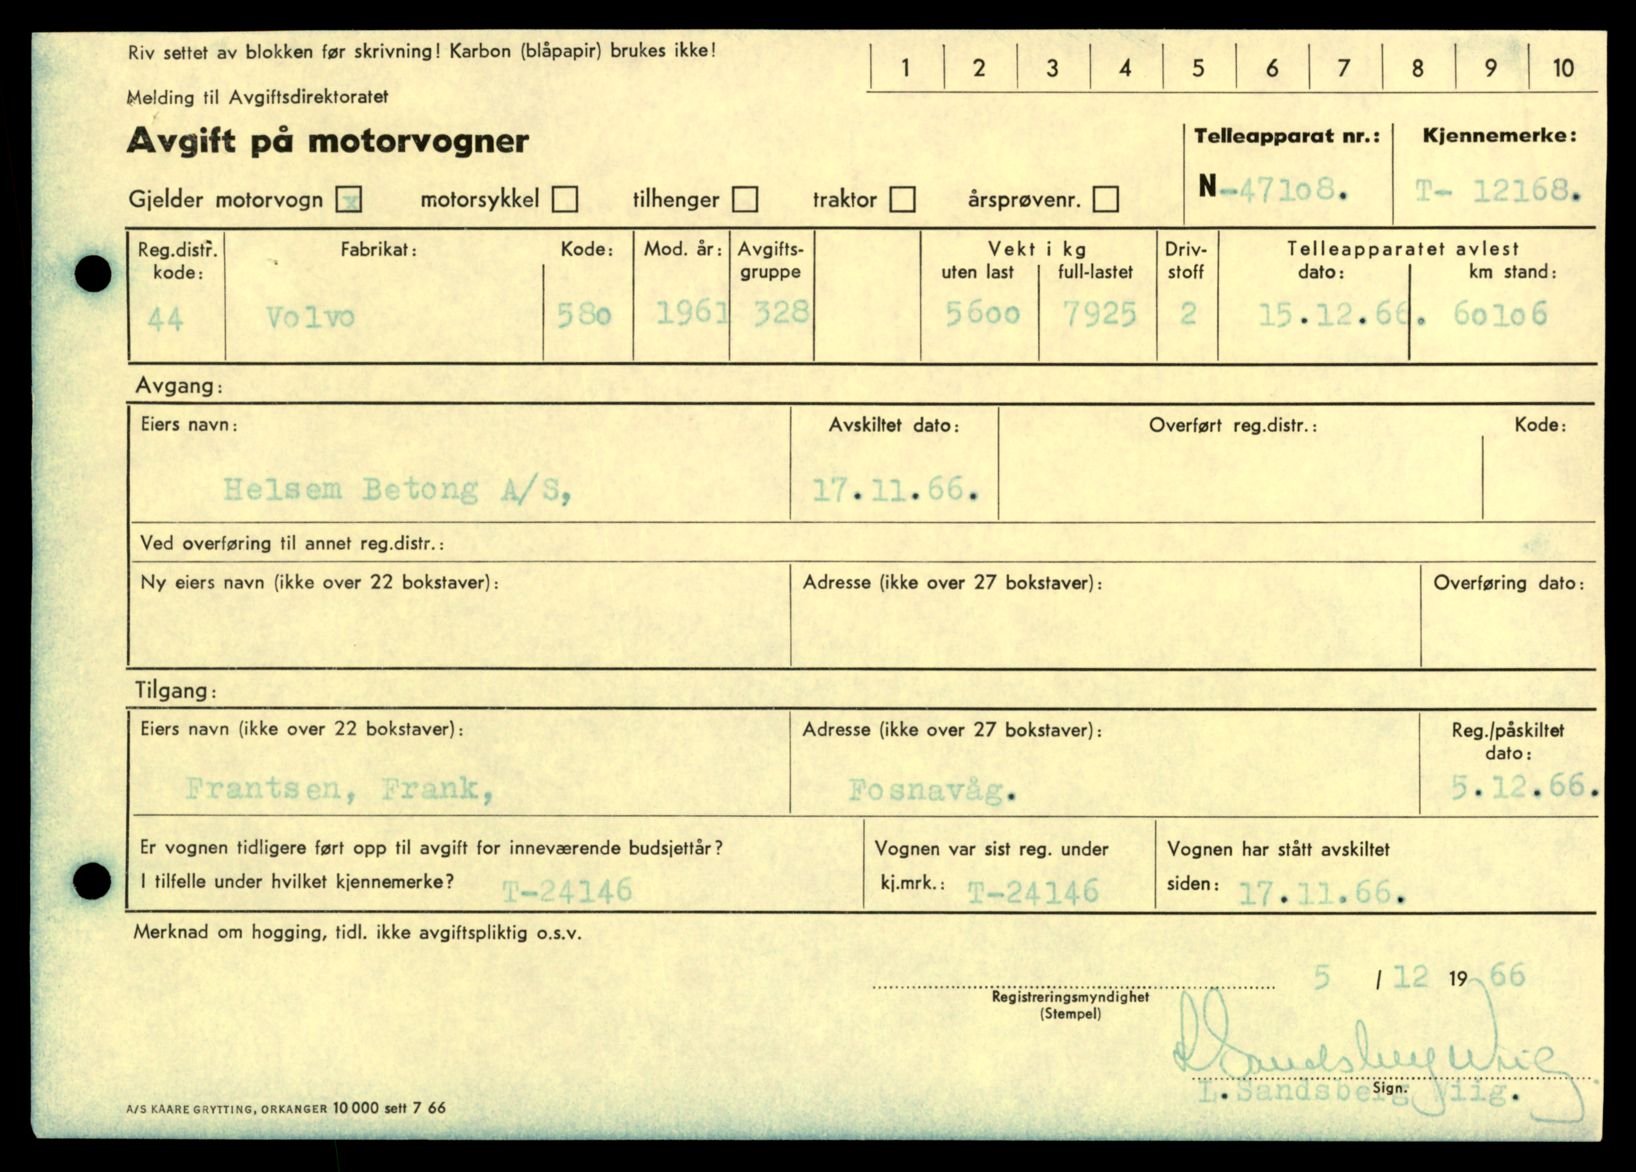 Riv settet av blokken før skrivning! Karbon (blåpapir) brukes ikke!
1 2 3 4 5 6 7 8 9 10
Melding til Avgiftsdirektoratet
Avgift på motorvogner
Telleapparat nr.: Kjennemerke:
Gjelder motorvogn x motorsykkel tilhenger traktor årsprøvenr. N-47108. T- 12168.
Reg.distr. kode: Fabrikat: Kode: Mod. år: Avgifts-gruppe Vekt i kg uten last full-lastet Driv-stoff Telleapparatet avlest dato: km stand:
44 Volvo 580 1961 328 5600 7925 2 15.12.66. 60106
Avgang:
Eiers navn: Avskiltet dato: Overført reg.distr.: Kode:
Helsem Betong A/S, 17.11.66.
Ved overføring til annet reg.distr.:
Ny eiers navn (ikke over 22 bokstaver): Adresse (ikke over 27 bokstaver): Overføring dato:
Tilgang:
Eiers navn (ikke over 22 bokstaver): Adresse (ikke over 27 bokstaver): Reg./påskiltet dato:
Frantsen, Frank, Fosnavåg. 5.12.66.
Er vognen tidligere ført opp til avgift for inneværende budsjettår? Vognen var sist reg. under Vognen har stått avskiltet
I tilfelle under hvilket kjennemerke? T-24146 kj.mrk.: T-24146 siden: 17.11.66.
Merknad om hogging, tidl. ikke avgiftspliktig o.s.v.
5 / 12 19 66
Registreringsmyndighet
(Stempel)
L Sandsberg Wiig
Sign.
L.Sandsberg Wiig.
A/S KAARE GRYTTING, ORKANGER 10 000 sett 7 66